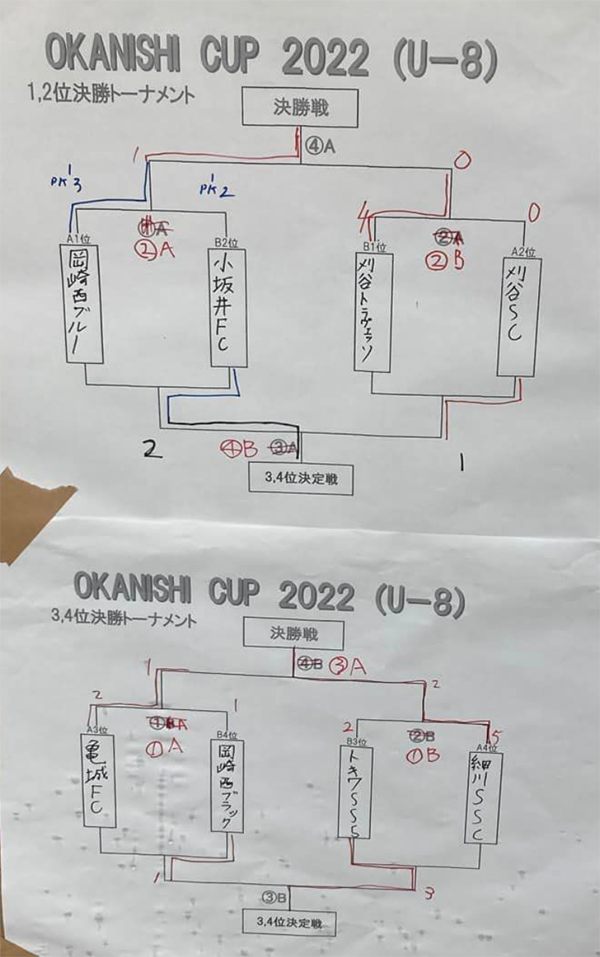 OKANISHI CUP 2022 (U-8)
1,2位決勝トーナメント
決勝戦
④A
1
0
PK 3
PK 2
4
0
A1位
①A
②A
B2位
B1位
②A
②B
A2位
岡崎西ブルー
小坂井FC
刈谷トラヴェッソ
刈谷SC
2
④B
③A
1
3,4位決定戦
OKANISHI CUP 2022 (U-8)
3,4位決勝トーナメント
決勝戦
④B
③A
1
2
2
1
2
5
A3位
①A
B4位
B3位
②B
①B
A4位
亀城FC
岡崎西ブラック
トキワSSS
細川SSC
1
3
③B
3,4位決定戦